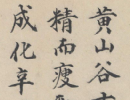 黄山谷
精而瘦
成化辛